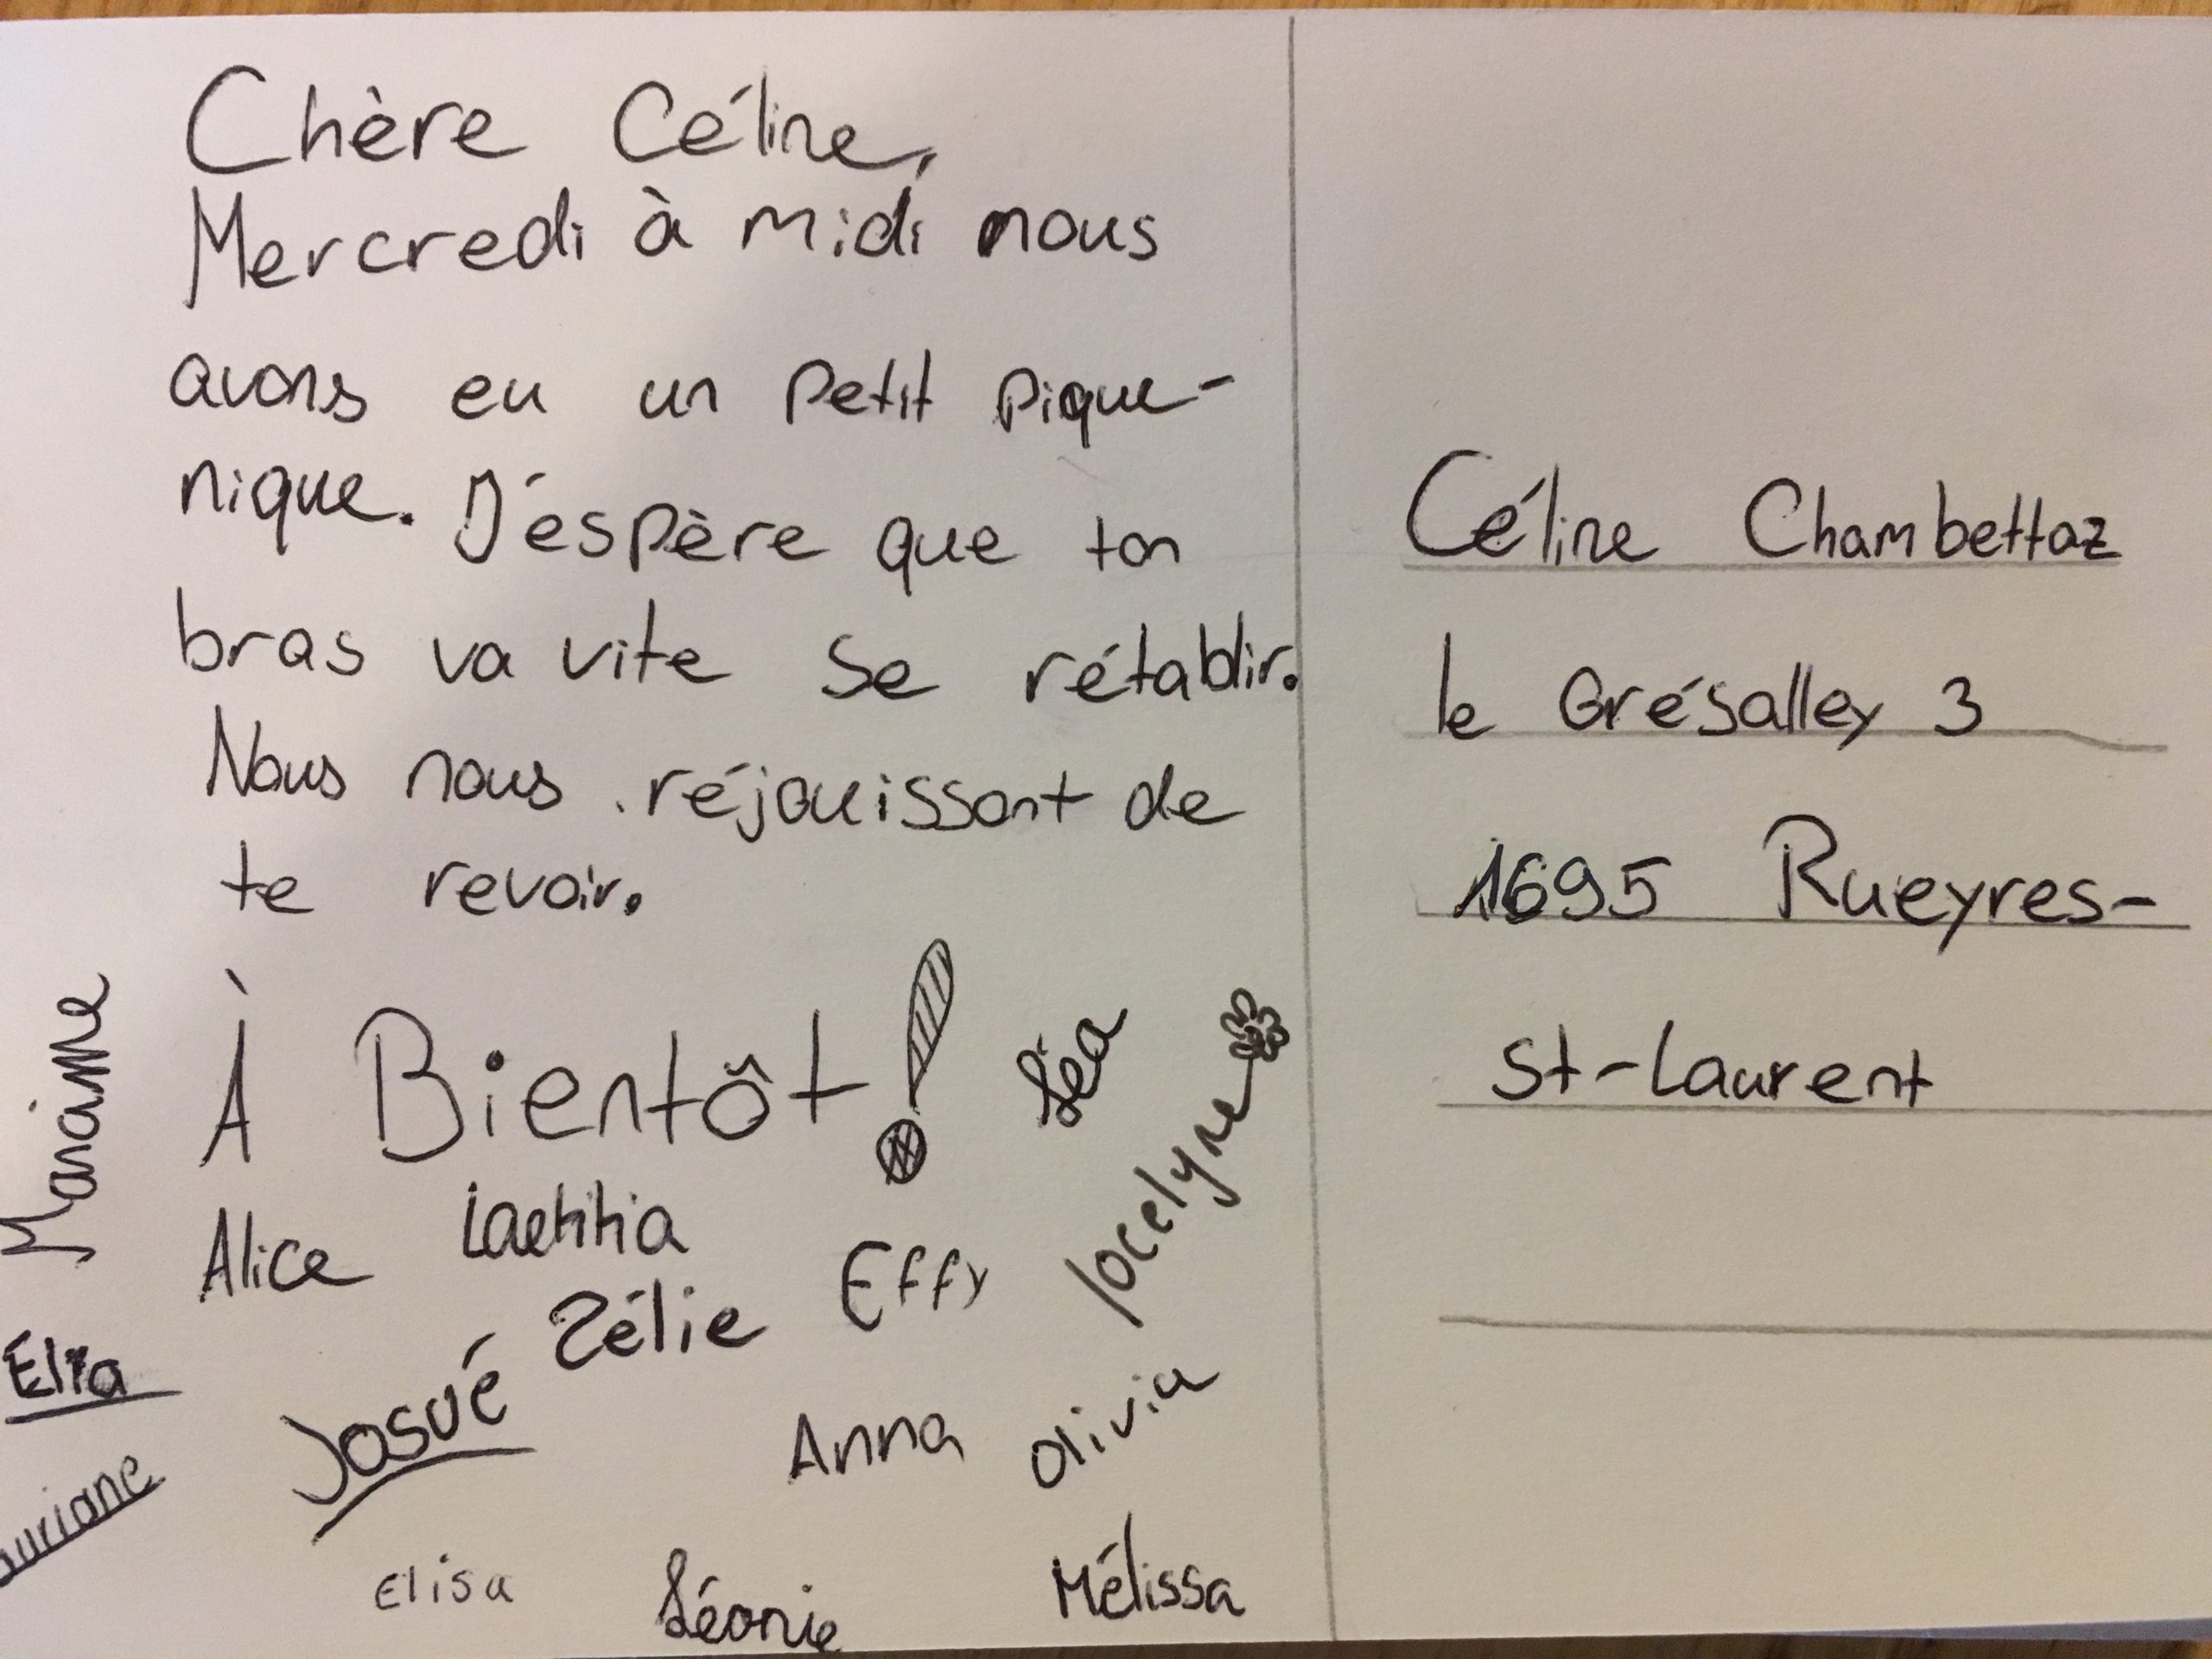 Chère Céline,
Mercredi à midi nous
avons eu un petit pique-
nique. J'éspère que ton
bras va vite se rétablir.
Nous nous réjouissont de
te revoir.
À Bientôt !
Léa
Jocelyne
Marianne
Alice
Laetitia
Effy
Zélie
Elia
Josué
Anna
Olivia
auriane
Elisa
Léonie
Mélissa
Céline Chambettaz
le Grésalley 3
1695 Rueyres-
St-Laurent